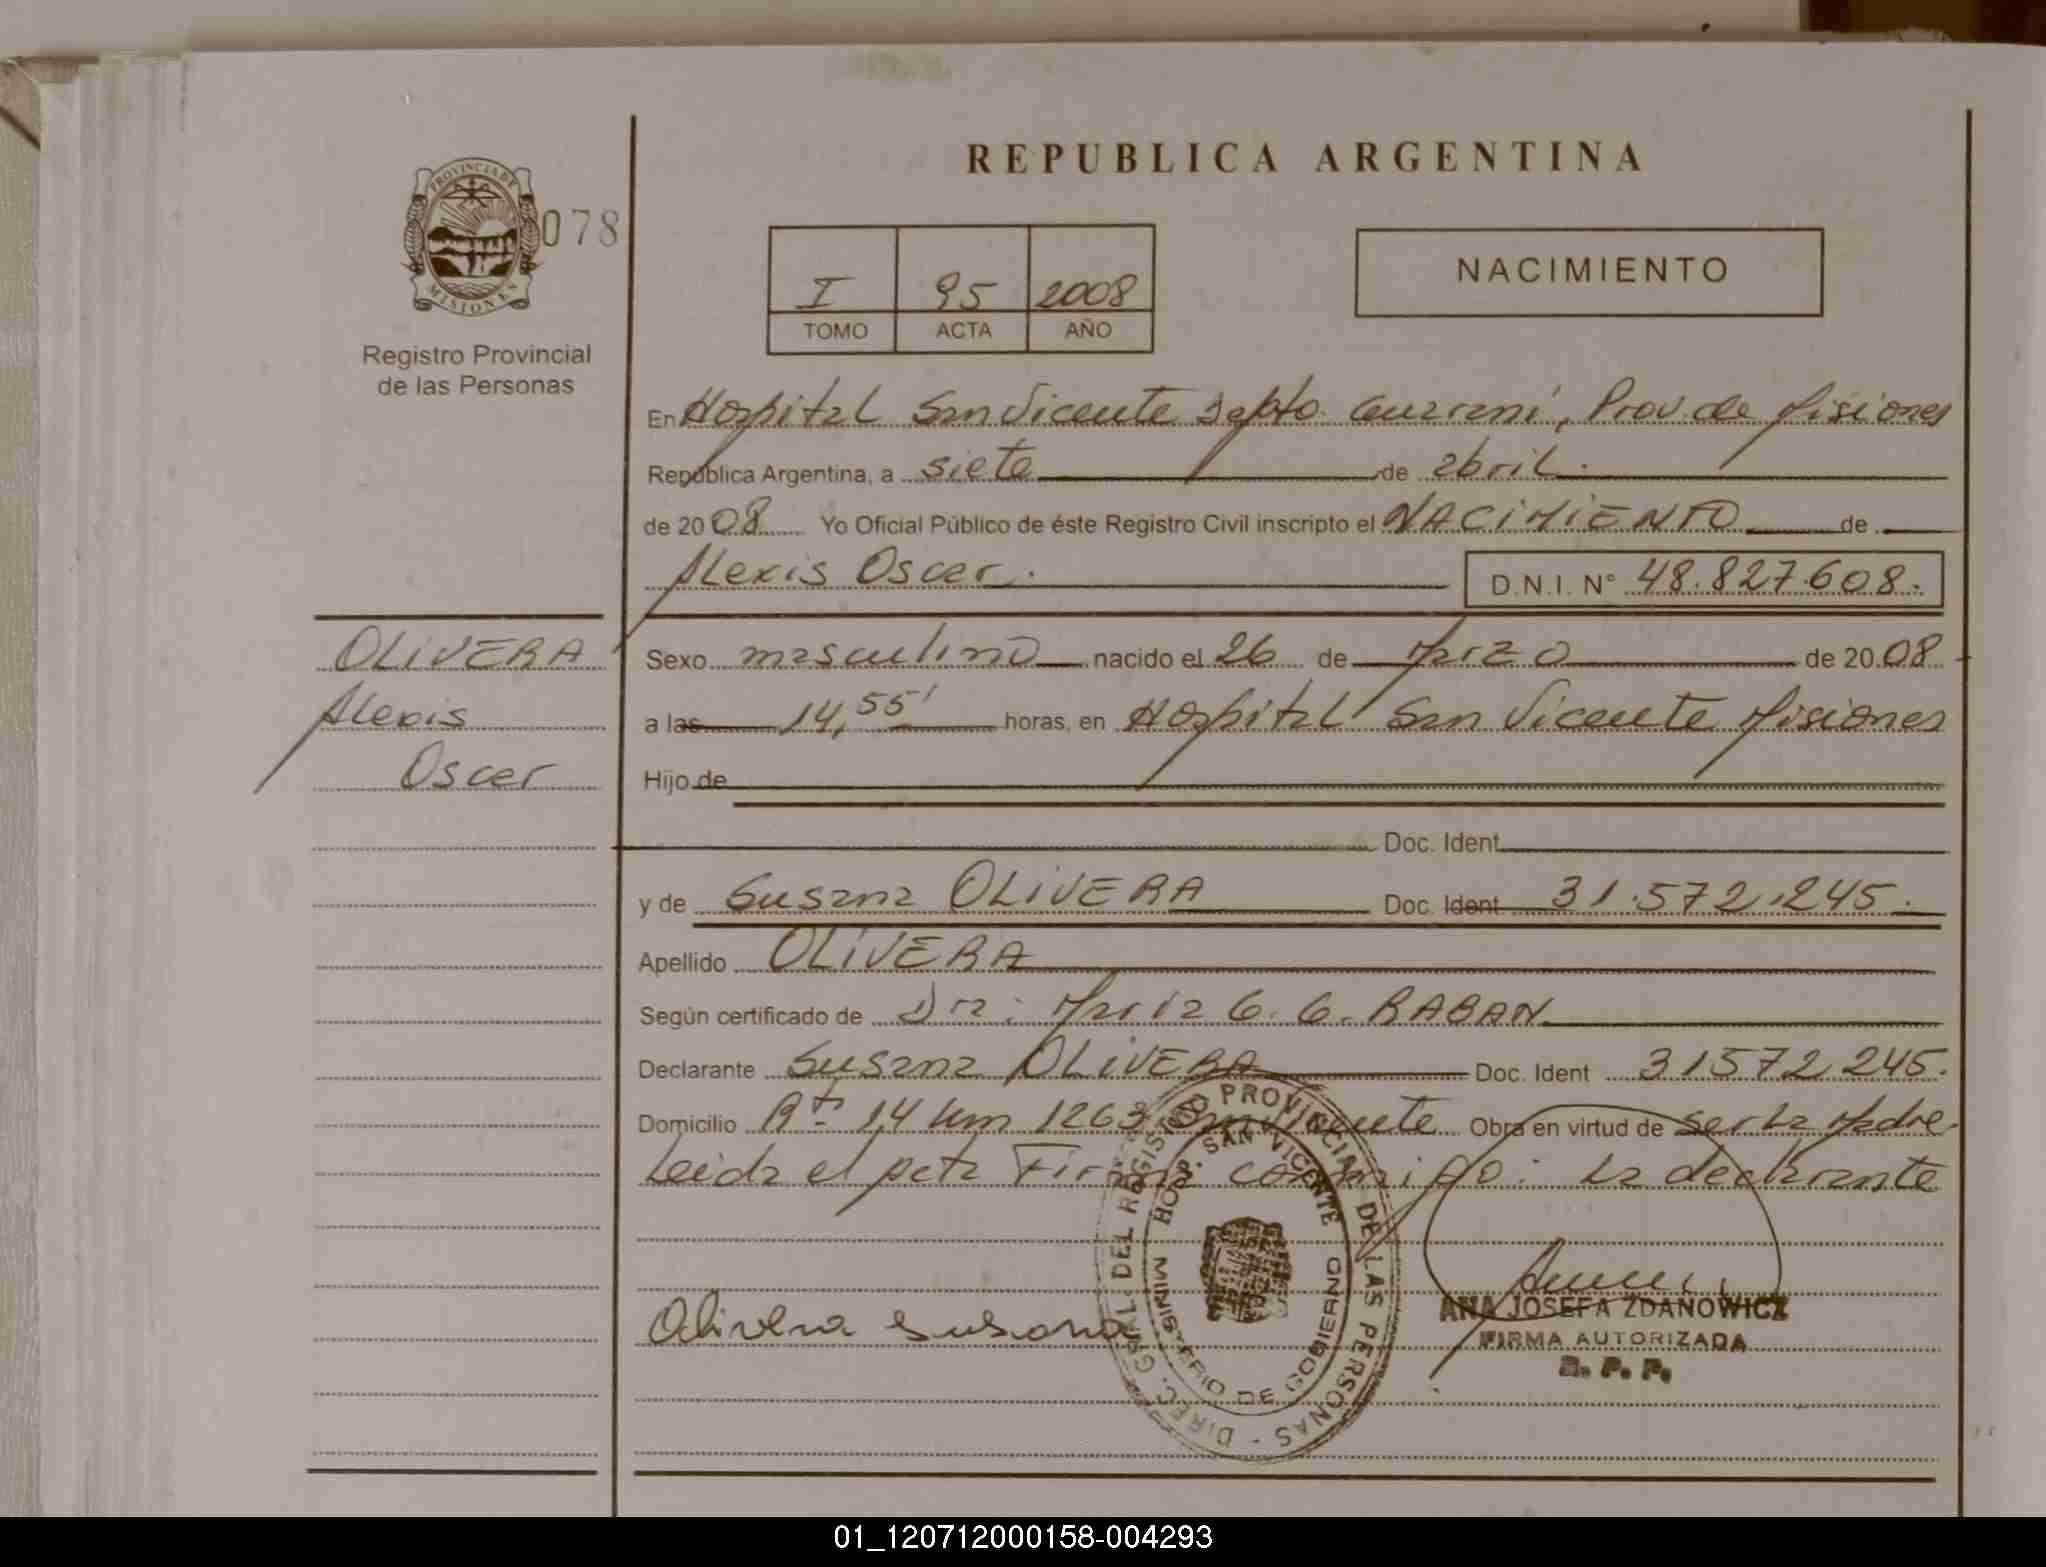 REPUBLICA ARGENTINA
PROVINCIA DE
MISIONES
078
Registro Provincial
de las Personas
I 95 2008
TOMO ACTA AÑO
NACIMIENTO
En Hospital San Vicente Dpto. Guaraní, Prov. de Misiones
República Argentina, a siete de abril.
de 2008 Yo Oficial Público de éste Registro Civil inscripto el NACIMIENTO de
Alexis Oscar. D.N.I. N° 48.827.608.
OLIVERA
Alexis
Oscar
Sexo masculino nacido el 26 de Marzo de 2008
a las 14,55' horas, en Hospital San Vicente Misiones
Hijo de
Doc. Ident
y de Susana OLIVERA Doc. Ident 31.572.245.
Apellido OLIVERA
Según certificado de Dra: Maria G. G. RABAN
Declarante Susana OLIVERA Doc. Ident 31572245.
Domicilio Rta 14 km 1263 San Vicente Obra en virtud de ser la Madre.
Leida el acta Firma conmigo: La declarante
Olivera Susana
DIREC. GRAL. DEL REGISTRO PROVINCIAL DE LAS PERSONAS -
HOSP. SAN VICENTE
MINISTERIO DE GOBIERNO
ANA JOSEFA ZDANOWICZ
FIRMA AUTORIZADA
R. P. P.
01_120712000158-004293